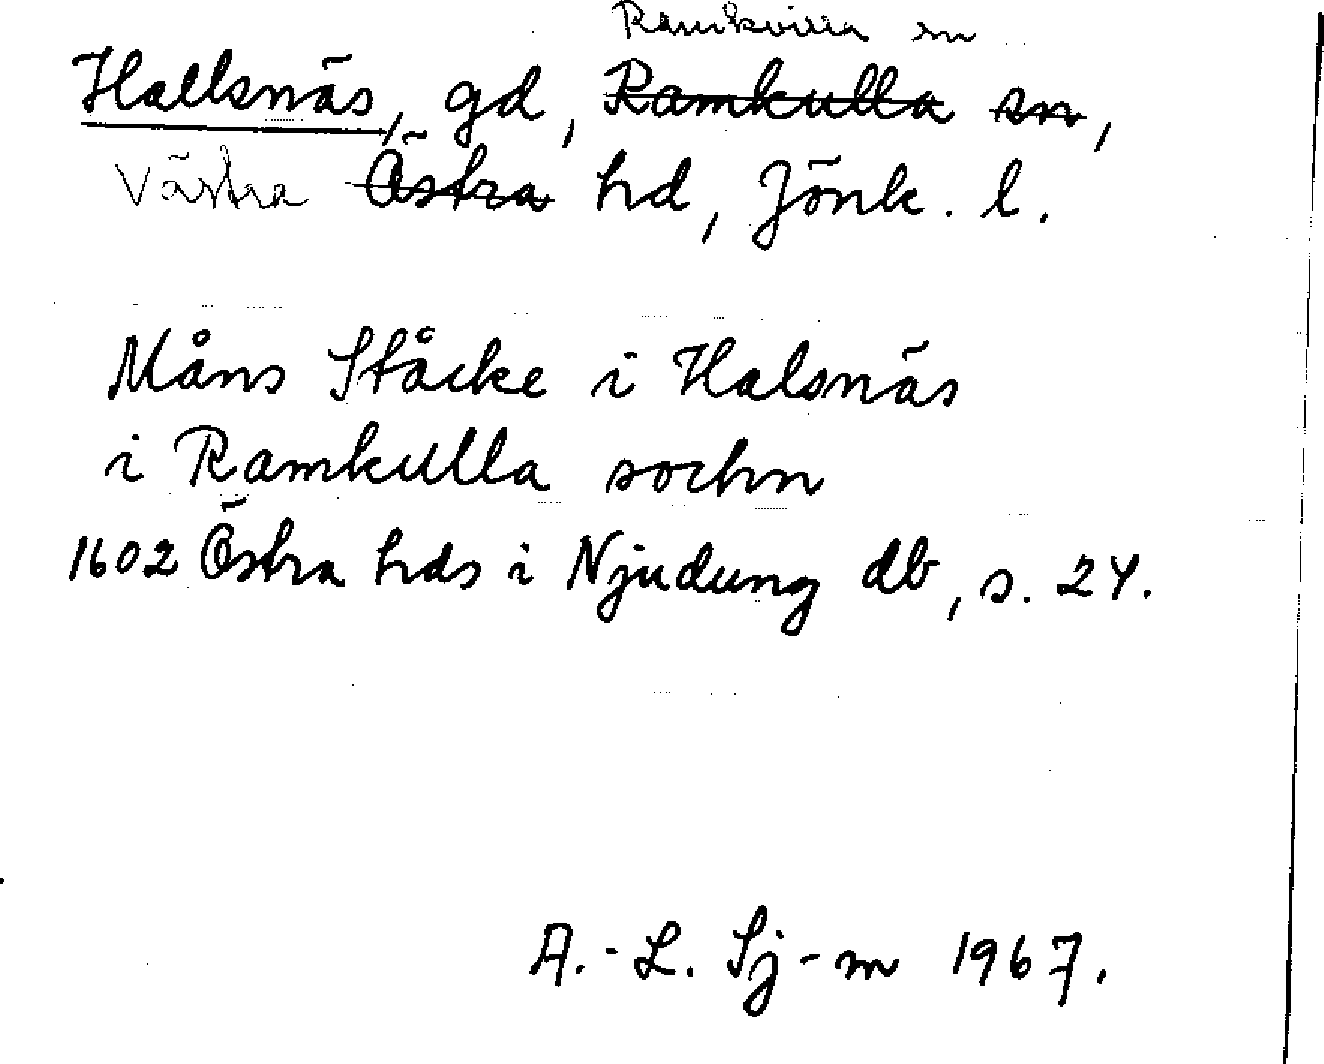 Ramkvilla sn
Hallsnäs, gd, Ramkulla sn,
Västra Östra hd, Jönk. l.
Måns Ståcke i Halsnäs
i Ramkulla sochn
1602 Östra hds i Njudung db, s. 24.
A.-L. Sj-m 1967.